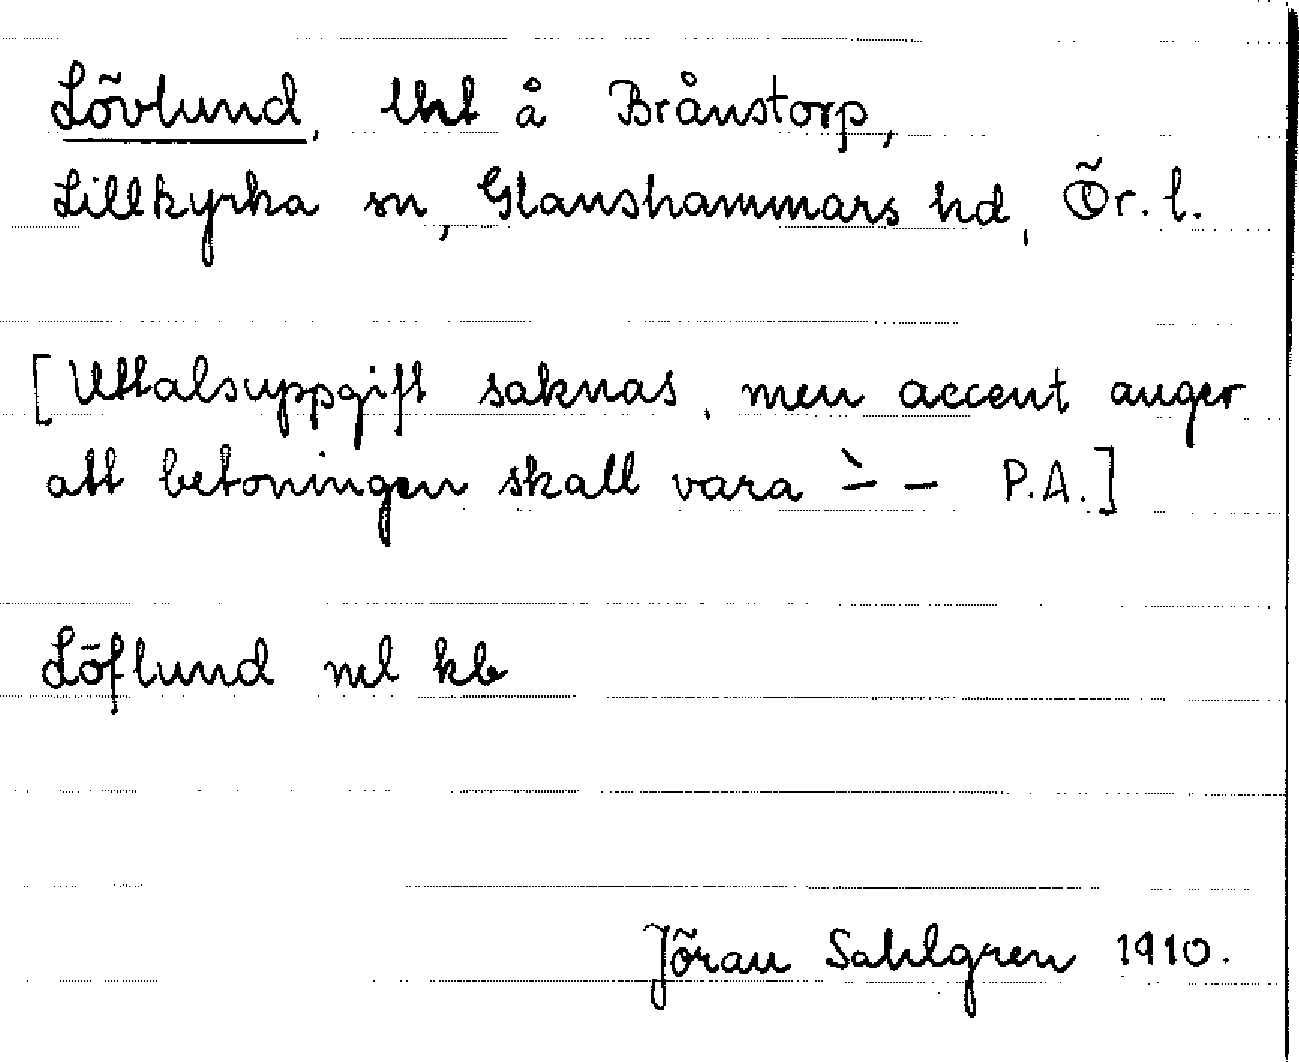 Lövlund, lht å Brånstorp,
Lillkyrka sn, Glanshammars hd, Ör. l.
[Uttalsuppgift saknas, men accent anger
att betoningen skall vara `– – P.A.]
Löflund ml kb
Jöran Sahlgren 1910.